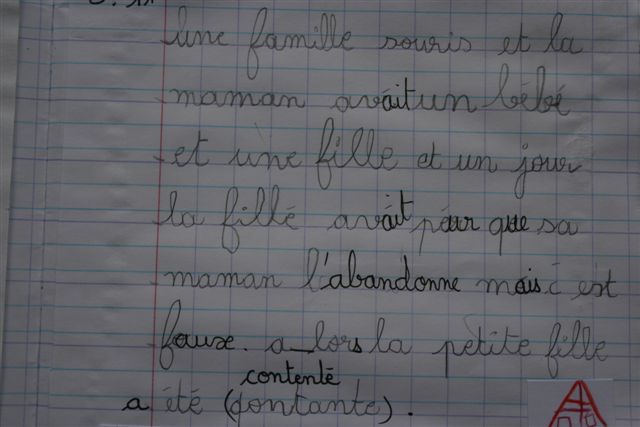 une famille souris et la
maman avait un bébé
et une fille et un jour
la fille avait peur que sa
maman l'abandonne mais c'est
fause. a_lors la petite fille
contenté
a été (contante).